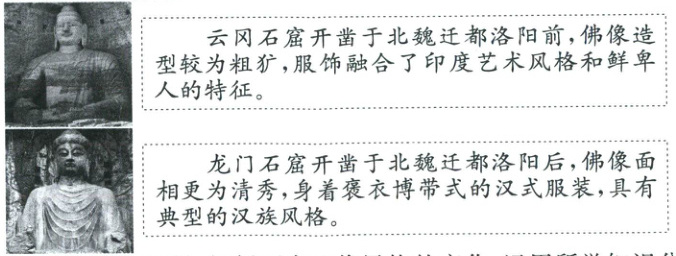 云冈石窟开凿于北魏迁都洛阳前,佛像造
型较为粗犷,服饰融合了印度艺术风格和鲜卑
人的特征。
龙门石窟开凿于北魏迁都洛阳后,佛像面
相更为清秀,身着褒衣博带式的汉式服装,具有
典型的汉族风格。